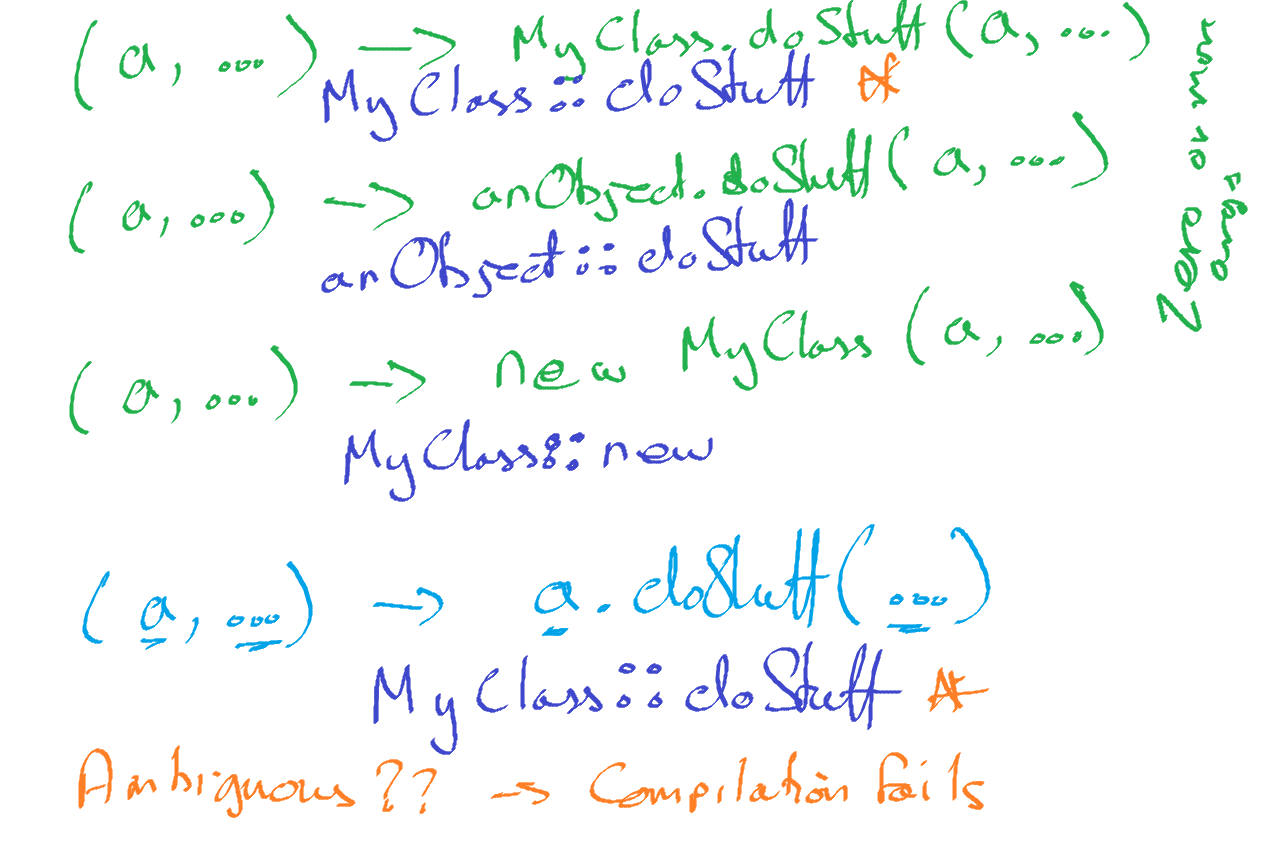 (a, ...) → MyClass.doStuff(a, ...)
MyClass::doStuff *
(a, ...) → anObject.doStuff(a, ...)
anObject::doStuff
(a, ...) → new MyClass(a, ...)
MyClass::new
(a, ...) → a.doStuff(...)
MyClass::doStuff *
Ambiguous?? → Compilation fails
Zero or more
args